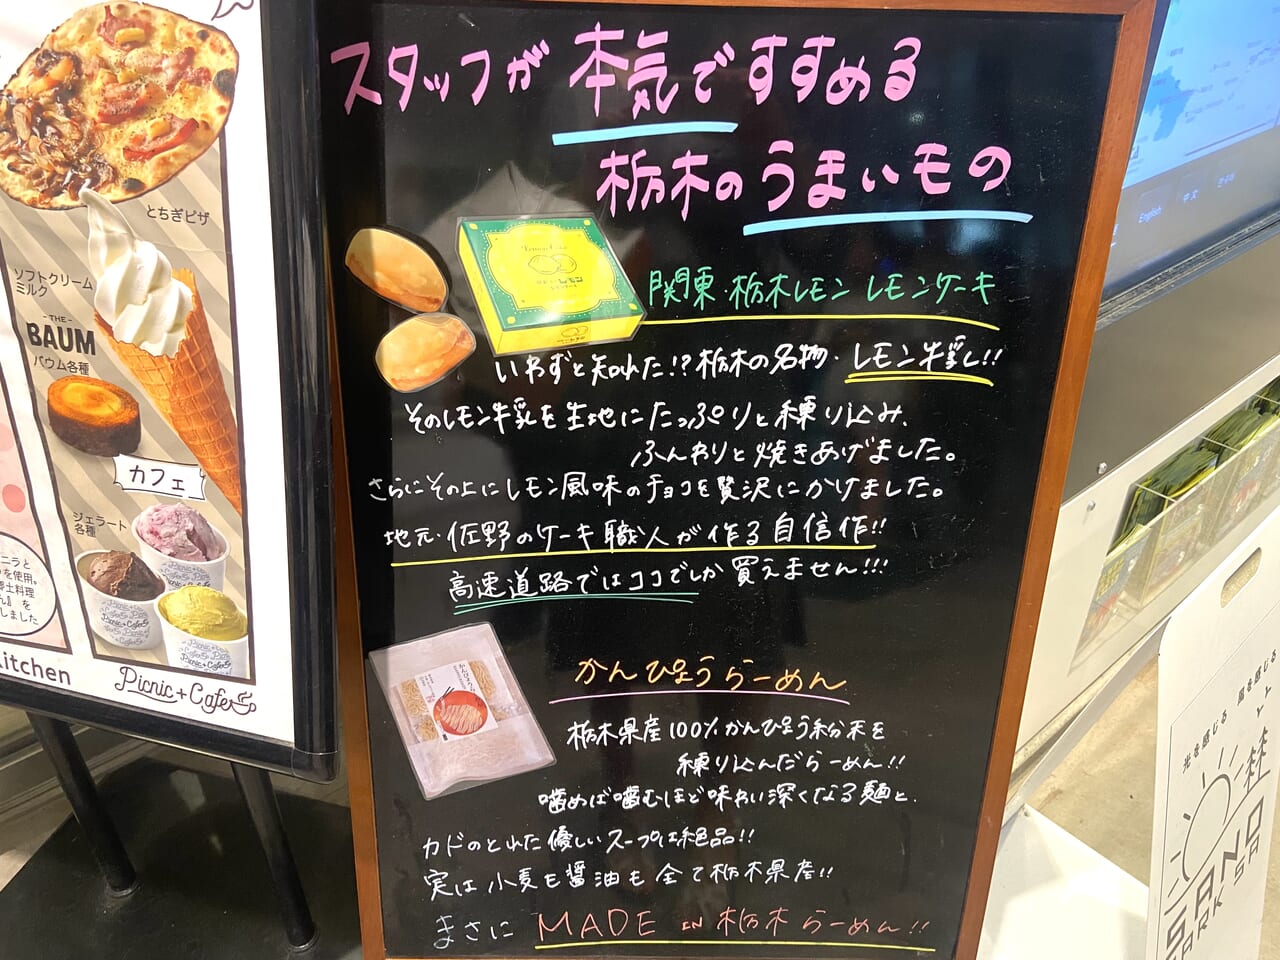 スタッフが本気ですすめる
栃木のうまいもの
関東・栃木レモン レモンケーキ
いわずと知れた!?栃木の名物・レモン牛乳!!
そのレモン牛乳を生地にたっぷりと練り込み、
ふんわりと焼きあげました。
さらにその上にレモン風味のチョコを贅沢にかけました。
地元・佐野のケーキ職人が作る自信作!!
高速道路ではココでしか買えません!!!
かんぴょうらーめん
栃木県産100%かんぴょう粉末を
練り込んだらーめん!!
噛めば噛むほど味わい深くなる麺と、
カドのとれた優しいスープは絶品!!
実は小麦も醤油も全て栃木県産!!
まさに MADE IN 栃木らーめん!!
とちぎピザ
ソフトクリーム
ミルク
-THE-
BAUM
バウム各種
カフェ
ジェラート
各種
Picnic+Cafe
を使用。
しました
Kitchen
Picnic+Cafe
English
中文
光を感じる 風を感じる
SANO
SA
PARK